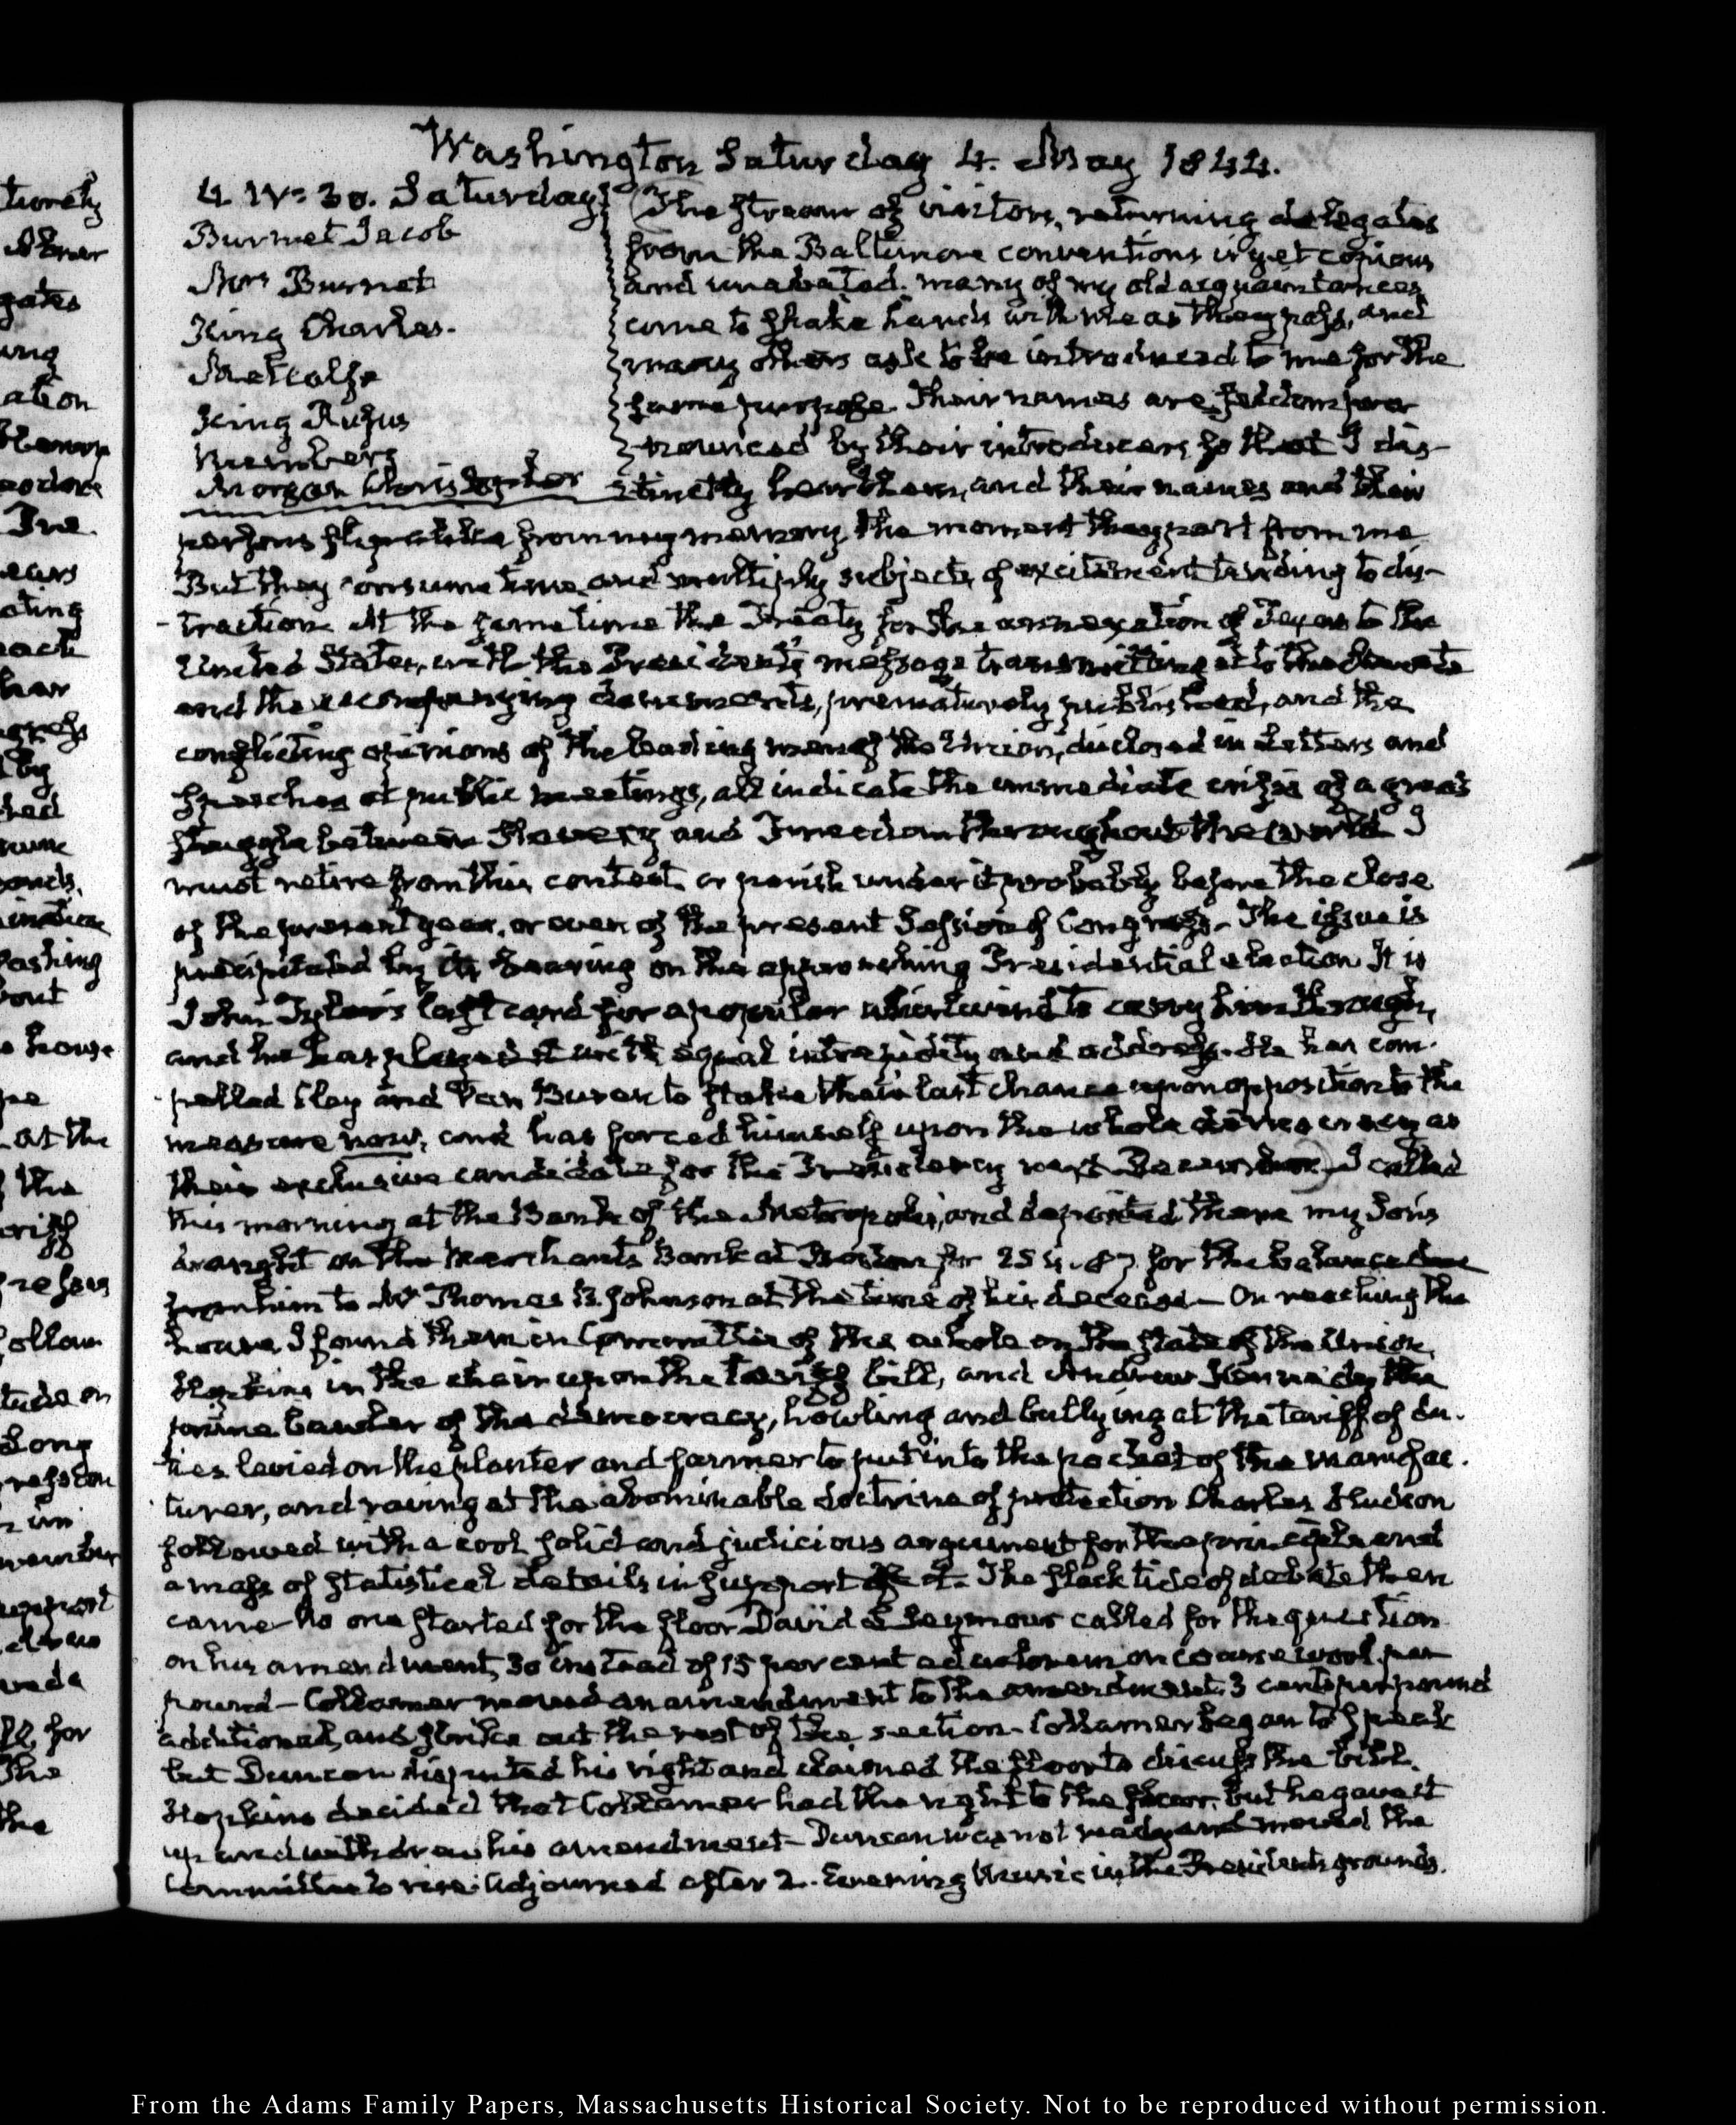 Washington Saturday 4. May 1844.
4. IV: 30. Saturday
Burnet Jacob
Mrs Burnet
King Charles.
Metcalfe
King Rufus
Morgan Christopher
The stream of visitors, returning delegates
from the Baltimore conventions is yet copious
and unabated. many of my old acquaintances
come to shake hands with me as they pass, and
many others ask to be introduced to me for the
same purpose. Their names are seldom pro-
nounced by their introducers so that I dis-
tinctly hear them, and their names and their
persons slip from my memory the moment they part from me
But they consume time, and multiply subjects of excitement tending to dis-
-traction. At the same time the Treaty for the annexation of Texas to the
United States, with the President's message transmitting it to the Senate
and the accompanying documents, prematurely published, and the
conflicting opinions of the leading men of the Union, disclosed in letters and
speeches at public meetings, all indicate the immediate crisis of a great
struggle between Slavery and Freedom throughout the world. I
must retire from this contest, or perish under it probably before the close
of the present year, or even of the present Session of Congress. The issue is
precipitated by its bearing on the approaching Presidential election. It is
John Tyler's last card for a popular whirlwind to carry him through,
and he has played it with equal intrepidity and address. He has com-
-pelled Clay and Van Buren to stake their last chance upon opposition to the
measure now, and has forced himself upon the whole democracy as
their exclusive candidate for the Presidency next December. I called
this morning at the Bank of the Metropolis, and deposited there my Son's
draught on the Merchants Bank at Boston for 254.87 for the balance due
from him to Mr Thomas B. Johnson at the time of his decease — On reaching the
house, I found them in Committee of the whole on the state of the Union,
Hopkins in the chair upon the tariff bill, and Andrew Kennedy the
bawler of the democracy, howling and bullying at the tariff of du-
ties levied on the planter and farmer to put into the pocket of the manufac-
turer, and raving at the abominable doctrine of protection Charles Hudson
followed with a cool solid and judicious argument for the principle and
a mass of statistical details in support of it. The slack tide of debate then
came no one started for the floor David L Seymour called for the question
on his amendment, 30 instead of 15 per cent ad valorem on coarse wool per
pound — Collamer moved an amendment to the amendment. 3 cents per pound
additional, and strike out the rest of the section. Collamer began to speak
but Duncan disputed his right and claimed the floor to discuss the bill.
Hopkins decided that Collamer had the right to the floor. but he gave it
up and withdrew his amendment — Duncan was not ready and moved the
Committee to rise. Adjourned after 2. Evening Music in the President's grounds.
From the Adams Family Papers, Massachusetts Historical Society. Not to be reproduced without permission.